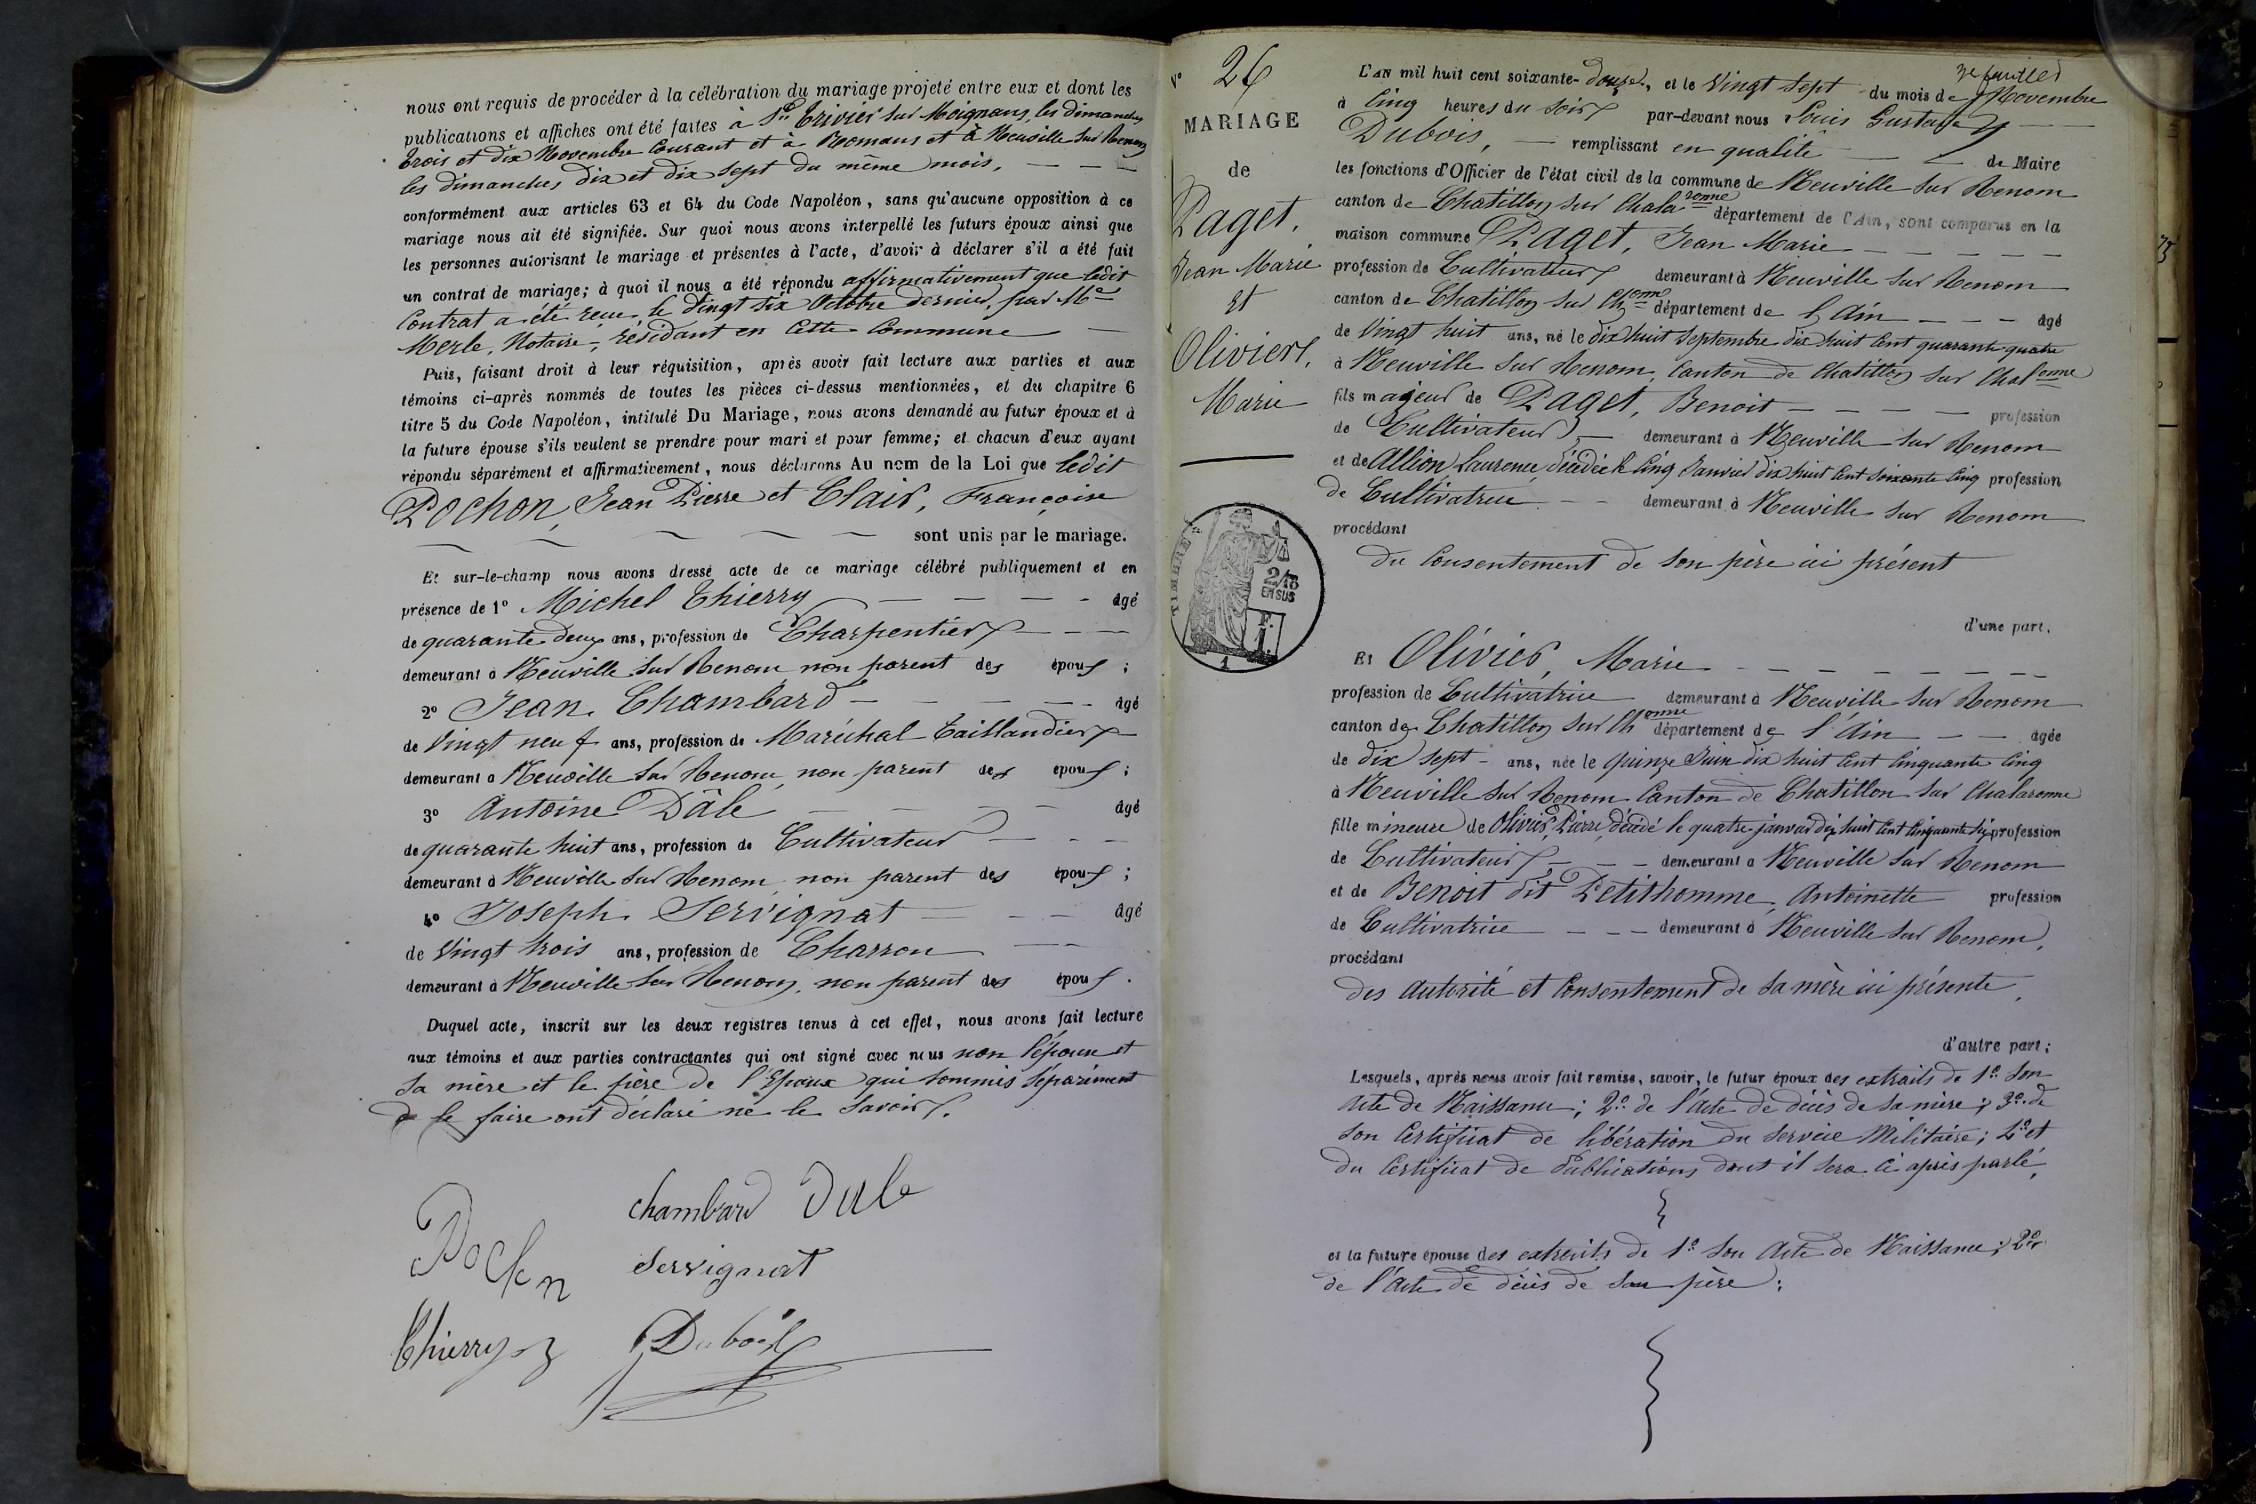 nous ont requis de procéder à la célébration du mariage projeté entre eux et dont les
publications et affiches ont été faites à St Trivier sur Moignans, les dimanches
trois et dix Novembre Courant et à Romans et à Neuville sur Renom
les dimanches dix et dix sept du même mois, — — —
conformément aux articles 63 et 64 du Code Napoléon, sans qu'aucune opposition à ce
mariage nous ait été signifiée. Sur quoi nous avons interpellé les futurs époux ainsi que
les personnes autorisant le mariage et présentes à l'acte, d'avoir à déclarer s'il a été fait
un contrat de mariage; à quoi il nous a été répondu affirmativement que ledit
Contrat a été reçu le Vingt six Octobre dernier, par Me
Merle, Notaire, résidant en Cette Commune —
Puis, faisant droit à leur réquisition, après avoir fait lecture aux parties et aux
témoins ci-après nommés de toutes les pièces ci-dessus mentionnées, et du chapitre 6
titre 5 du Code Napoléon, intitulé Du Mariage, nous avons demandé au futur époux et à
la future épouse s'ils veulent se prendre pour mari et pour femme; et chacun d'eux ayant
répondu séparément et affirmativement, nous déclarons Au nom de la Loi que ledit
Pochon, Jean Pierre et Clair, Françoise
sont unis par le mariage.
Et sur-le-champ nous avons dressé acte de ce mariage célébré publiquement et en
présence de 1° Michel Thierry — — — — âgé
de quarante deux ans, profession de Charpentier — — —
demeurant à Neuville sur Renom non parent des époux ;
2° Jean Chambard — — — — âgé
de Vingt neuf ans, profession de Maréchal Taillandier
demeurant à Neuville sur Renom non parent des époux ;
3° Antoine Dâlé — — — — âgé
de quarante huit ans, profession de Cultivateur — — —
demeurant à Neuville sur Renom non parent des époux ;
4° Joseph Servignat — — — âgé
de Vingt trois ans, profession de Charron — —
demeurant à Neuville sur Renom, non parent des époux .
Duquel acte, inscrit sur les deux registres tenus à cet effet, nous avons fait lecture
aux témoins et aux parties contractantes qui ont signé avec nous non l'épouse et
sa mère et le père de l'Epoux qui sommés séparément
de le faire ont déclaré ne le savoir.
chambard Dale
Pochon
Servignat
Thierry
Dubois
N° 26
MARIAGE
de
Paget,
Jean Marie
et
Olivier,
Marie
TIMBRE
2/10
EN SUS
F.
1.
1
3e feuillet
L'an mil huit cent soixante-douze, et le Vingt sept du mois de Novembre
à Cinq heures du soir par-devant nous Louis Gustave
Dubois, — remplissant en qualité — — de Maire
les fonctions d'Officier de l'état civil de la commune de Neuville sur Renom
canton de Chatillon sur Chalaronne département de l'Ain, sont comparus en la
maison commune Paget, Jean Marie — — — — —
profession de Cultivateur demeurant à Neuville sur Renom
canton de Chatillon sur Chonne département de l'Ain — — — âgé
de Vingt huit ans, né le dix huit Septembre dix huit Cent quarante quatre
à Neuville sur Renom, Canton de Chatillon sur Chalonne
fils majeur de Paget, Benoit — — — — profession
de Cultivateur — demeurant à Neuville sur Renom
et de Allion Laurence, décédée le Cinq Janvier dix huit Cent Soixante Cinq profession
de Cultivatrice — — demeurant à Neuville sur Renom
procédant
du Consentement de son père ici présent
d'une part,
Et Olivier, Marie — — — — — — —
profession de Cultivatrice demeurant à Neuville sur Renom
canton de Chatillon sur Chonne département de l'Ain — — âgée
de dix sept — ans, née le quinze Juin dix huit Cent Cinquante Cinq
à Neuville sur Renom Canton de Chatillon sur Chalaronne
fille mineure de Olivier, Pierre, décédé le quatre janvier dix huit Cent Cinquante six profession
de Cultivateur — — — demeurant à Neuville sur Renom
et de Benoit dit Petithomme, Antoinette profession
de Cultivatrice — — — demeurant à Neuville sur Renom,
procédant
des autorité et Consentement de sa mère ici présente,
d'autre part;
Lesquels, après nous avoir fait remise, savoir, le futur époux des extraits de 1° Son
Acte de Naissance; 2° de l'Acte de décès de sa mère; 3° de
son Certificat de libération du Service Militaire; 4° et
du Certificat de Publications dont il sera ci après parlé,
et la future épouse des extraits de 1° Son Acte de Naissance; 2°
de l'Acte de décès de Son père;